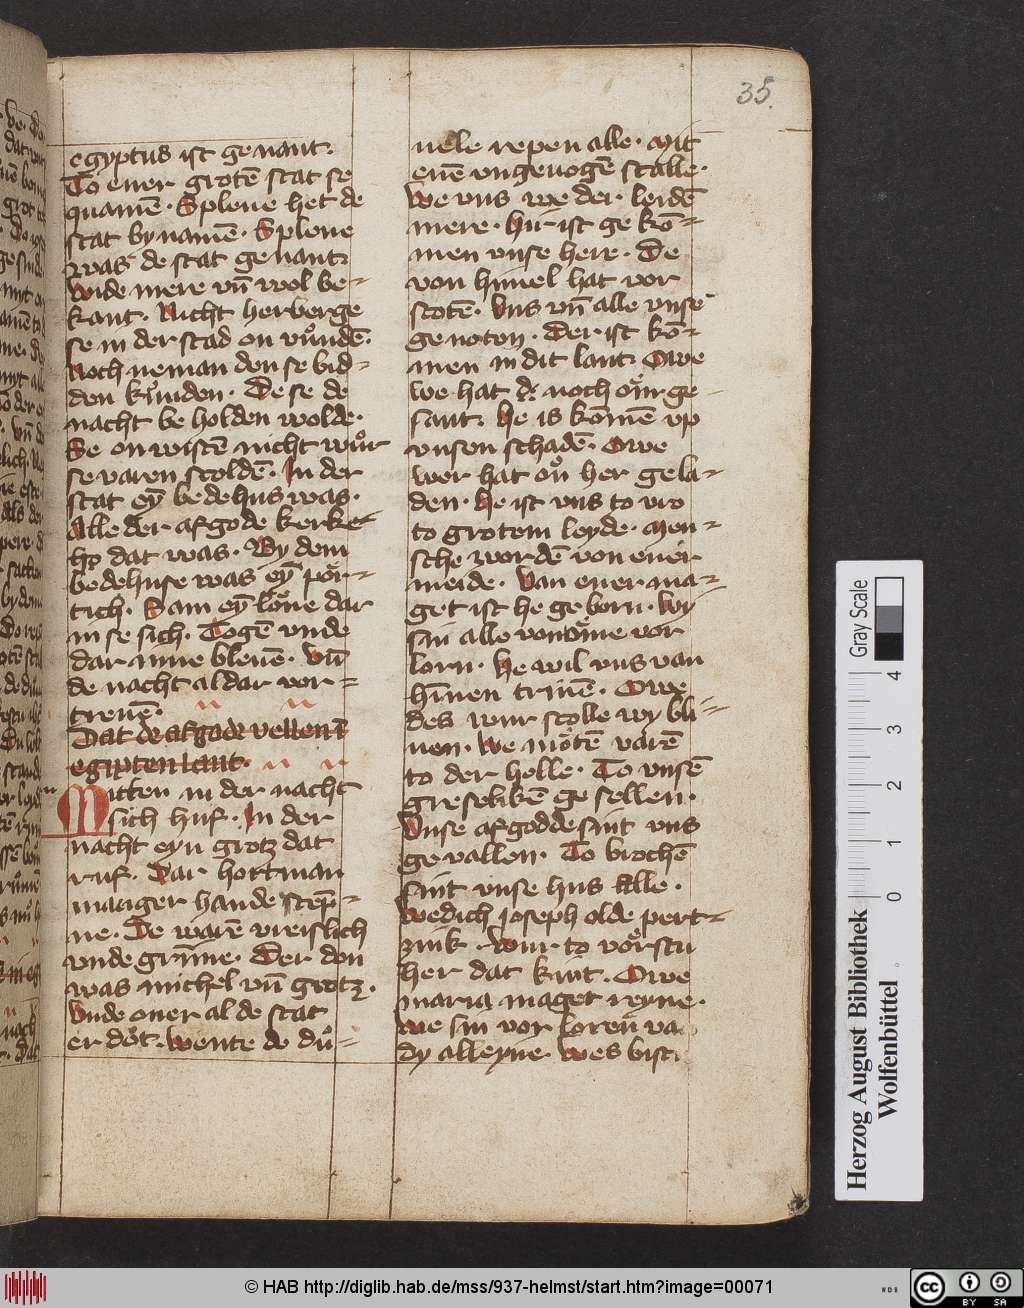 35.
egyptus ist genant.
To ener grotē stat se
quamē. Splene het de
stat by namē. Splene
was de stat genant
Wide mere vn̄ wol be-
kant. Nicht herberge
se in der stad on vůndē.
Noch neman den se bid-
den kůnden. De se de
nacht be holden wolde.
Se on wistē nicht wůr
se varen scoldē. In der
stat eȳ bedehus was.
Alle der afgode kerke
ho dat was. By dem
bedehuse was eȳ pör-
tich. Sam eȳ löue dar
in se sich. Togē vnde
dar inne bleuē. Vn̄
de nacht al dar vor-
treuē.
Dat de afgode vellen ī
egipten lant.
Mitten in der nacht
sich huf. In der
nacht eyn grotz dat
ruf. Dar hort man
maniger hande stēp-
ne. De warē vreislich
vnde grīme. Der don
was michel vn̄ grotz.
Vnde ouer al de stat
er dőt. Wente de dů-
uele repen alle. Mit
enē vngeuogē scalle.
We vns we der leidē
mere. Hir ist ge kō-
men vnse here. De
von himel hat vor
stotē. Vns vn̄ alle vnse
genoten. Der ist kō-
men in dit lant. Owe
we hat noch ge
sant. He is komē vp
vnsen schadē. Owe
wer hat oň her gela-
den. He ist vns to vro
to grotem leyde. Men-
sche wordē von ener
meide. Van ener ma-
get ist he geborn. Wy
sin alle vor
lorn. He wil vns van
hīnen triuē. Owe
des wur scolle wy bli-
uen. We mőtē varē
to der helle. To vnsē
greselikē ge sellen.
Vnse afgodde sint vns
geuallen. To brochē
sint vnse hus alle.
We dich ioseph olde pert-
zuik. Wur to vőrstu
her dat kint. Owe
maria maget reyne.
We sin vor loren va
dy alleyne. Wes bist
Herzog August Bibliothek
Wolfenbüttel
Gray Scale
0 1 2 3 4
© HAB http://diglib.hab.de/mss/937-helmst/start.htm?image=00071
WDB
cc BY SA